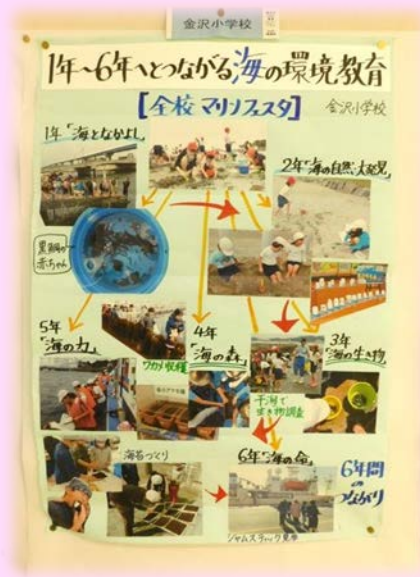 金沢小学校
1年～6年へとつながる海の環境教育
[全校マリンフェスタ]
金沢小学校
1年「海となかよし」
2年「海の自然・大発見」
黒鯛の
赤ちゃん
5年
「海の力」
ワカメ収穫
4年
「海の森」
3年
「海の生き物」
干潟で
生き物調査
海苔づくり
6年「海の命」
6年間
の
つながり
ジャムステック見学